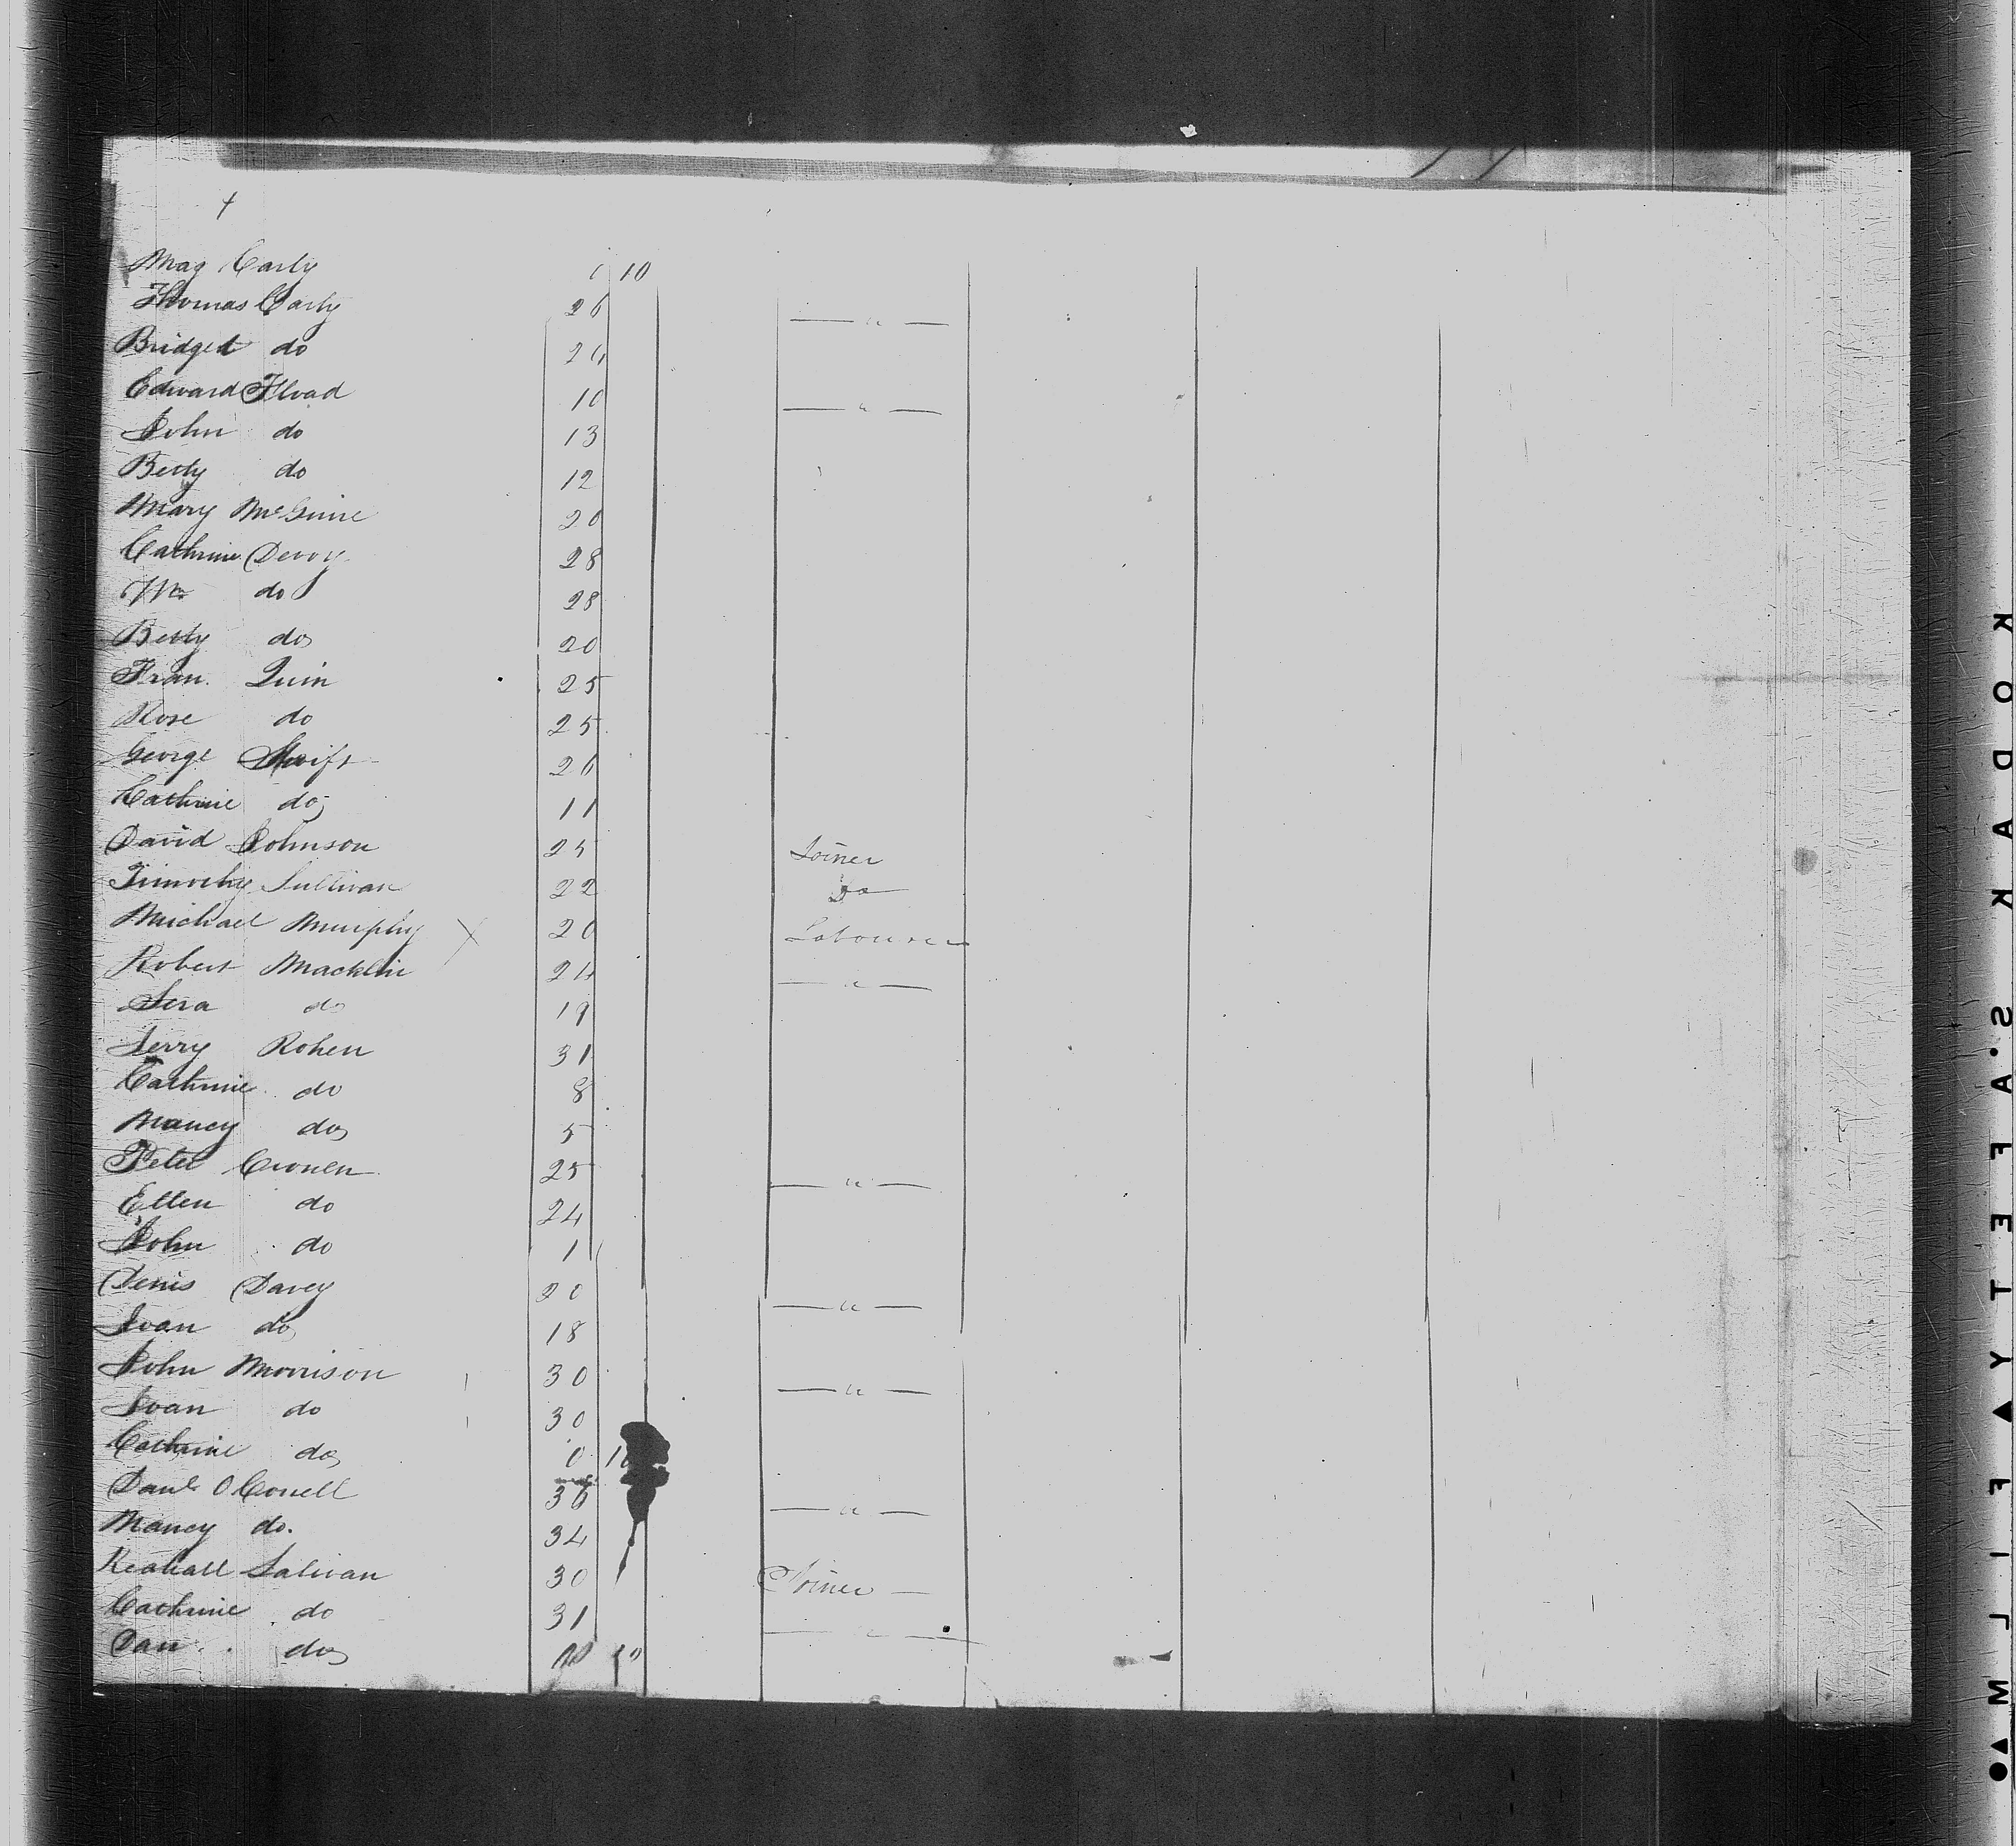 4
Mag Carty 10
Thomas Carty 26 — " —
Bridget do 24
Edward Fload 10 — " —
John do 13
Betty do 12
Mary McGuire 20
Cathrine Devoy 28
Wm do 28
Betty do 20
Fran. Quin 25
Rose do 25
George Swift 26
Cathrine do 11
David Johnson 25 Joiner
Timothy Sullivan 22 Do
Michael Murphy X 20 Labourer
Robert Macklin 24 — " —
Sera do 19
Jerry Rohen 31
Cathrine do 8
Nancy do 5
Peter Cronen 25 — " —
Ellen do 24
John do 1
Denis Davey 20 — " —
Joan do 18
John Morrison 30 — " —
Joan do 30
Cathrine do 0 10
Danl O Conell 36 — " —
Nancy do. 34
Salivan 30 Joiner —
Cathrine do 31
Dan do 10
KODAK S.A.F.E.T.Y ▲ FILM ▲●